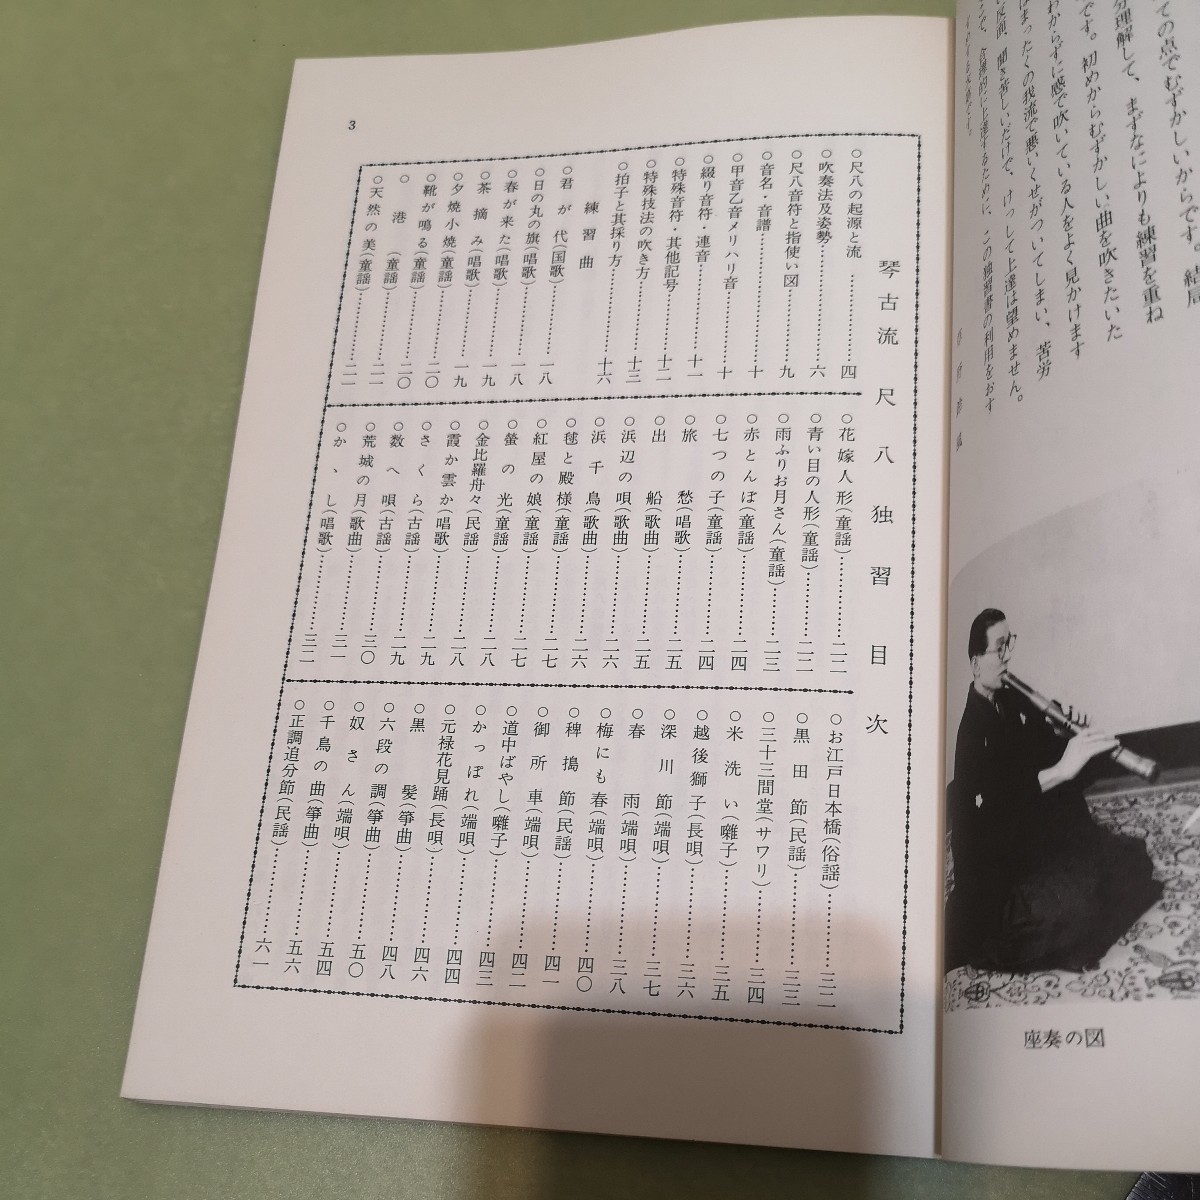 ての点でむずかしいからです。結局
分理解して、まずなによりも練習を重ね
です。初めからむずかしい曲を吹きたいた
わからずに感で吹いている人をよく見かけます
はまったくの我流で悪いくせがついてしまい、苦労
反面、聞き苦しいだけで、けっして上達は望めません。
で、合理的に上達するために、この独習書の利用をおす
座奏の図
3
琴古流尺八独習目次
○尺八の起源と流……………四
○吹奏法及姿勢……………六
○尺八音符と指使い図……………九
○音名・音譜……………十
○甲音乙音メリハリ音……………十
○綴り音符・連音……………十一
○特殊音符・其他記号……………十二
○特殊技法の吹き方……………十三
○拍子と其採り方……………十六
練習曲
○君が代(国歌)……………一八
○日の丸の旗(唱歌)……………一八
○春が来た(唱歌)……………一九
○茶摘み(唱歌)……………一九
○夕焼小焼(童謡)……………二〇
○靴が鳴る(童謡)……………二〇
○港(童謡)……………二一
○天然の美(童謡)……………二一
○花嫁人形(童謡)……………二二
○青い目の人形(童謡)……………二二
○雨ふりお月さん(童謡)……………二三
○赤とんぼ(童謡)……………二四
○七つの子(童謡)……………二四
○旅愁(唱歌)……………二五
○出船(歌曲)……………二五
○浜辺の唄(歌曲)……………二六
○浜千鳥(歌曲)……………二六
○毬と殿様(童謡)……………二七
○紅屋の娘(童謡)……………二七
○螢の光(童謡)……………二八
○金比羅舟々(民謡)……………二八
○霞か雲か(唱歌)……………二九
○さくら(古謡)……………二九
○数へ唄(古謡)……………三〇
○荒城の月(歌曲)……………三一
○かゝし(唱歌)……………三二
○お江戸日本橋(俗謡)……………三二
○黒田節(民謡)……………三三
○三十三間堂(サワリ)……………三四
○米洗い(囃子)……………三五
○越後獅子(長唄)……………三六
○深川節(端唄)……………三七
○春雨(端唄)……………三八
○梅にも春(端唄)……………四〇
○稗搗節(民謡)……………四一
○御所車(端唄)……………四二
○道中ばやし(囃子)……………四三
○かっぽれ(端唄)……………四四
○元禄花見踊(長唄)……………四六
○黒髪(箏曲)……………四八
○六段の調(箏曲)……………五〇
○奴さん(端唄)……………五四
○千鳥の曲(箏曲)……………五六
○正調追分節(民謡)……………六一